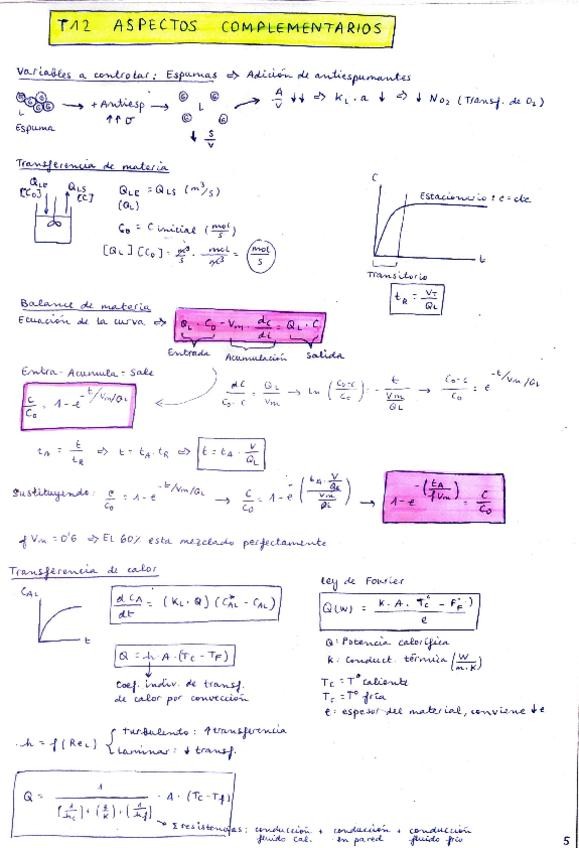 T12 ASPECTOS COMPLEMENTARIOS
Variables a controlar: Espumas => Adición de antiespumantes
L
Espuma
→ + Antiesp →
↑↑ σ
L
↓ S/V
→ A/V ↓↓ => K_L·a ↓ => ↓ N_O2 (Transf. de O2)
Transferencia de materia
Q_LE
[C0]
Q_LS
[C]
Q_LE = Q_LS (m³/s)
(Q_L)
C0 = C inicial (mol/s)
[Q_L][C0] = m³/s · mol/m³ = mol/s
C
Estacionario: c = cte
t
Transitorio
t_R = V_T/Q_L
Balance de materia
Ecuación de la curva => Q_L·C0 - V_m · dC/dt = Q_L·C
Entrada Acumulación Salida
Entra - Acumula = Sale
C/C0 = 1 - e^(-t/Vm/QL)
dC/(C0-C) = Q_L/V_m → Ln((C0-C)/C0) = - t/(Vm/QL) → (C0-C)/C0 = e^(-t/Vm/QL)
t_A = t/t_R => t = t_A·t_R => t = t_A · V/Q_L
Sustituyendo: C/C0 = 1 - e^(-t/Vm/QL) → C/C0 = 1 - e^-(t_A·V/QL / Vm/QL) → 1 - e^-(t_A/fVm) = C/C0
f Vm = 0'6 => EL 60% esta mezclado perfectamente
Transferencia de calor
C_AL
t
dC_A/dt = (K_L·Q)(C*_AL - C_AL)
Q = h·A·(T_C - T_F)
Coef. indiv. de transf.
de calor por convección
h = f(Re_L)
turbulento: ↑ transferencia
Laminar: ↓ transf.
Ley de Fourier
Q(W) = K·A·
e
Q: Potencia calorífica
K: Conduct. térmica (W/m·K)
T_C = Tª caliente
T_F = Tª fría
e: espesor del material, conviene ↓e
Q = 1/([1/hc]+(e/K)+(1/hf)) · A · (Tc - Tf)
Σ resistencias: conducción + conducción + conducción
fluido cal. en pared fluido frío
5